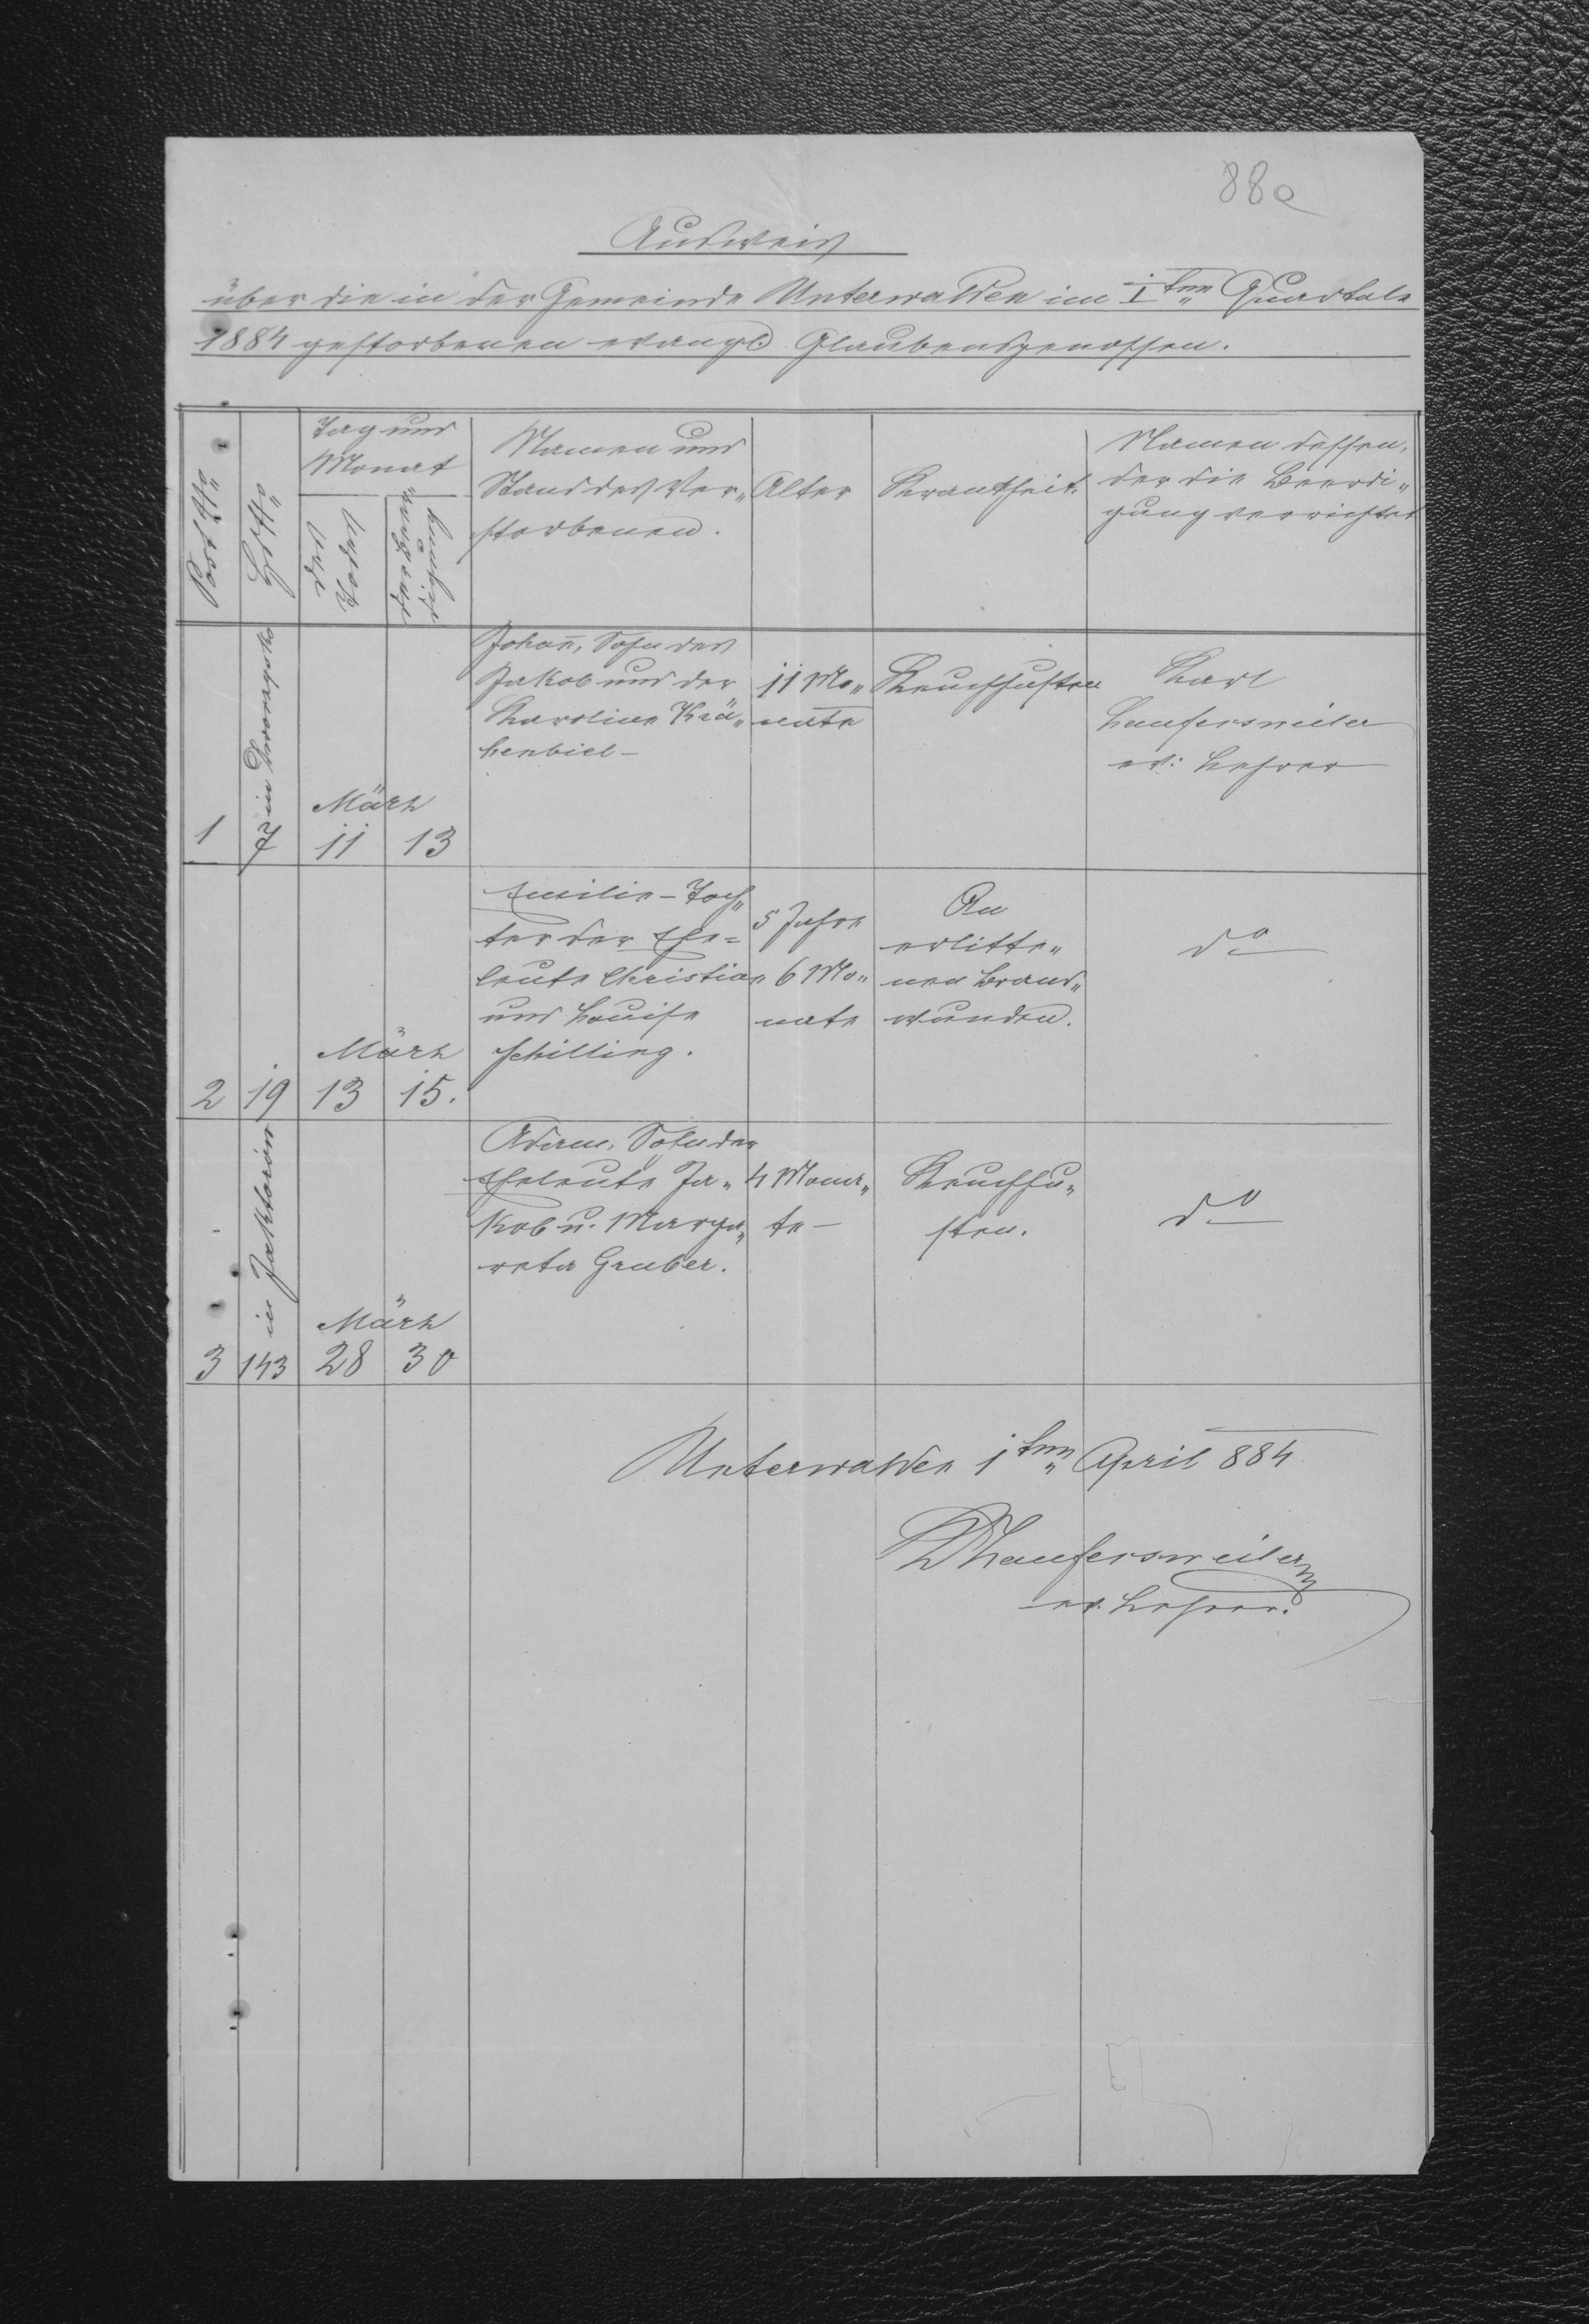 88e
Ausweis
über die in der Gemeinde Unterwalden im Iten Quartale
1884 gestorbenen evangl. Glaubensgenossen.
Post No
Hs No
Tag und
Monat
des
Todes
der Beer„
digung
Namen und
Stand des Ver„
storbenen.
Alter
Krankheit.
Namen dessen,
der die Beerdi„
gung verrichtet
1
7 in
März
11
13
Johan̄, Sohn des
Jakob und der
Karoline Krä„
henbiel –
11 Mo„
nate
Keuchhusten
Karl
Laufersweiler
ev: Lehrer
2
19
März
13
15.
Emilie – Toch„
ter der Ehe=
leute Christian
und Louise
Schilling.
5 Jahre
6 Mo„
nate
An
erlitte„
nen Brand„
wunden.
do
3
143 in Jaktorów
März
28
30
Adam, Sohn der
Eheleute Ja„
kob u. Marga„
reta Gruber.
4 Mona„
te –
Keuchhu„
sten.
do
Unterwalden 1ten April 884
KLaufersweiler
ev. Lehrer.